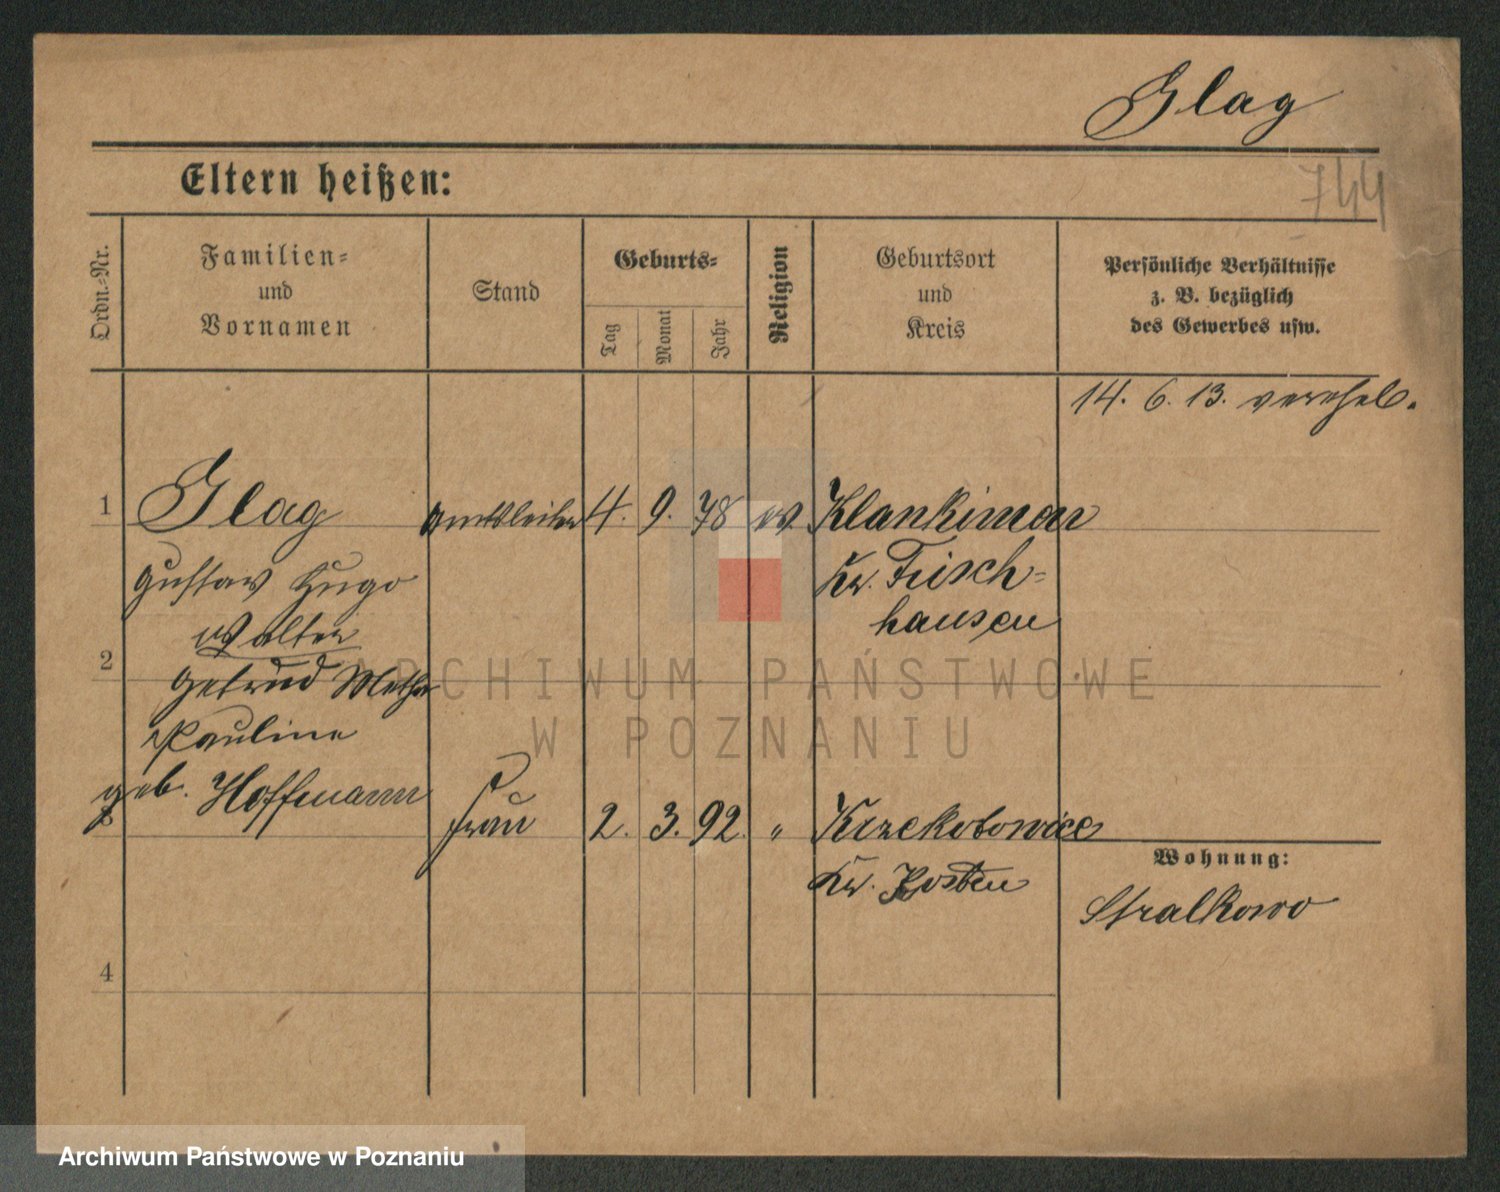 Glag
744
Eltern heißen:
Ordn.-Nr.
Familien- und Vornamen
Stand
Geburts-
Tag
Monat
Jahr
Religion
Geburtsort und Kreis
Persönliche Verhältnisse z. B. bezüglich des Gewerbes usw.
14. 6. 13. verehel.
1 Glag 4. 9. 78 ev Klankiman
Gustav Hugo Kr. Fisch-
Walter hausen
2
Getrud Metha
Pauline
geb. Hoffmann Frau 2. 3. 92. " Krzekotowice
Kr. Kosten
Wohnung:
Stralkowo
4
ARCHIWUM PAŃSTWOWE
W POZNANIU
Archiwum Państwowe w Poznaniu